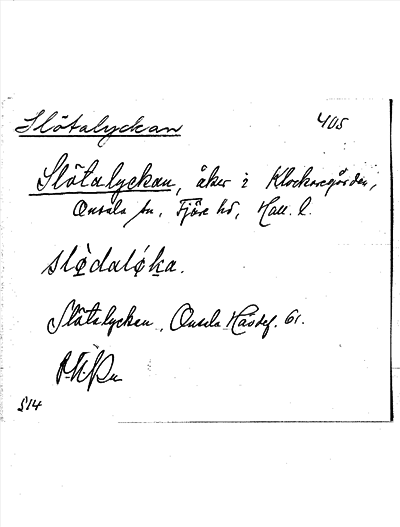 Slötalyckan 405
Slötalyckan, åker i Klockaregården,
Onsala sn, Fjäre hd, Hall. l.
slø̀dalǿka.
Slötalyckan, Onsala
S14